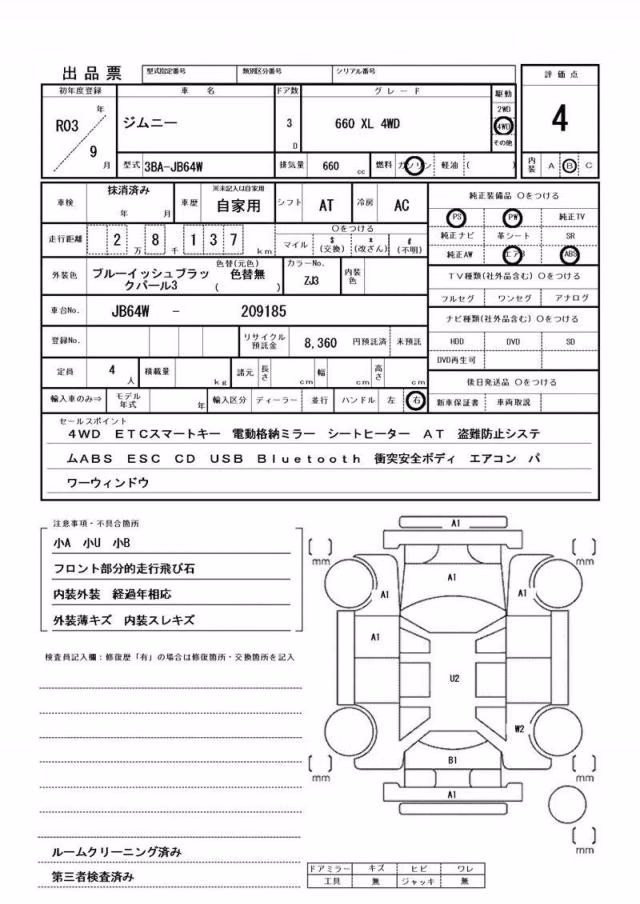 出品票 型式指定番号 類別区分番号 シリアル番号 評価点
初年度登録 車名 ドア数 グレード 駆動
R03年 9月 ジムニー 3D 660 XL 4WD 2WD 4WD その他 4
型式 3BA-JB64W 排気量 660 cc 燃料 ガソリン 軽油 ( ) 内装 A B C
車検 抹消済み 年 月 車歴 ※未記入は自家用 自家用 シフト AT 冷房 AC 純正装備品 ○をつける
PS PW 純正TV
走行距離 2万 8千 137 km ○をつける マイル $(交換) x(改ざん) #(不明) 純正ナビ 革シート SR
純正AW エアB ABS
外装色 ブルーイッシュブラックパール3 色替(元色) 色替無 ( ) カラーNo. ZJ3 内装色 TV種類(社外品含む) ○をつける
フルセグ ワンセグ アナログ
車台No. JB64W - 209185 ナビ種類(社外品含む) ○をつける
登録No. リサイクル預託金 8,360 円預託済 未預託 HDD DVD SD
DVD再生可
定員 4人 積載量 kg 諸元 長さ cm 幅 cm 高さ cm 後日発送品 ○をつける
輸入車のみ⇒ モデル年式 年 輸入区分 ディーラー 並行 ハンドル 左 右 新車保証書 車両取説
セールスポイント
4WD ETCスマートキー 電動格納ミラー シートヒーター AT 盗難防止システ
ムABS ESC CD USB Bluetooth 衝突安全ボディ エアコン パ
ワーウィンドウ
注意事項・不具合箇所
小A 小U 小B
フロント部分的走行飛び石
内装外装 経過年相応
外装薄キズ 内装スレキズ
検査員記入欄:修復歴「有」の場合は修復箇所・交換箇所を記入
ルームクリーニング済み
第三者検査済み
A1
[ ] mm [ ] mm
A1
A1 A1
A1
U2
W2
B1
[ ] mm [ ] mm
A1
[ ] mm
ドアミラー キズ ヒビ ワレ
工具 無 ジャッキ 無